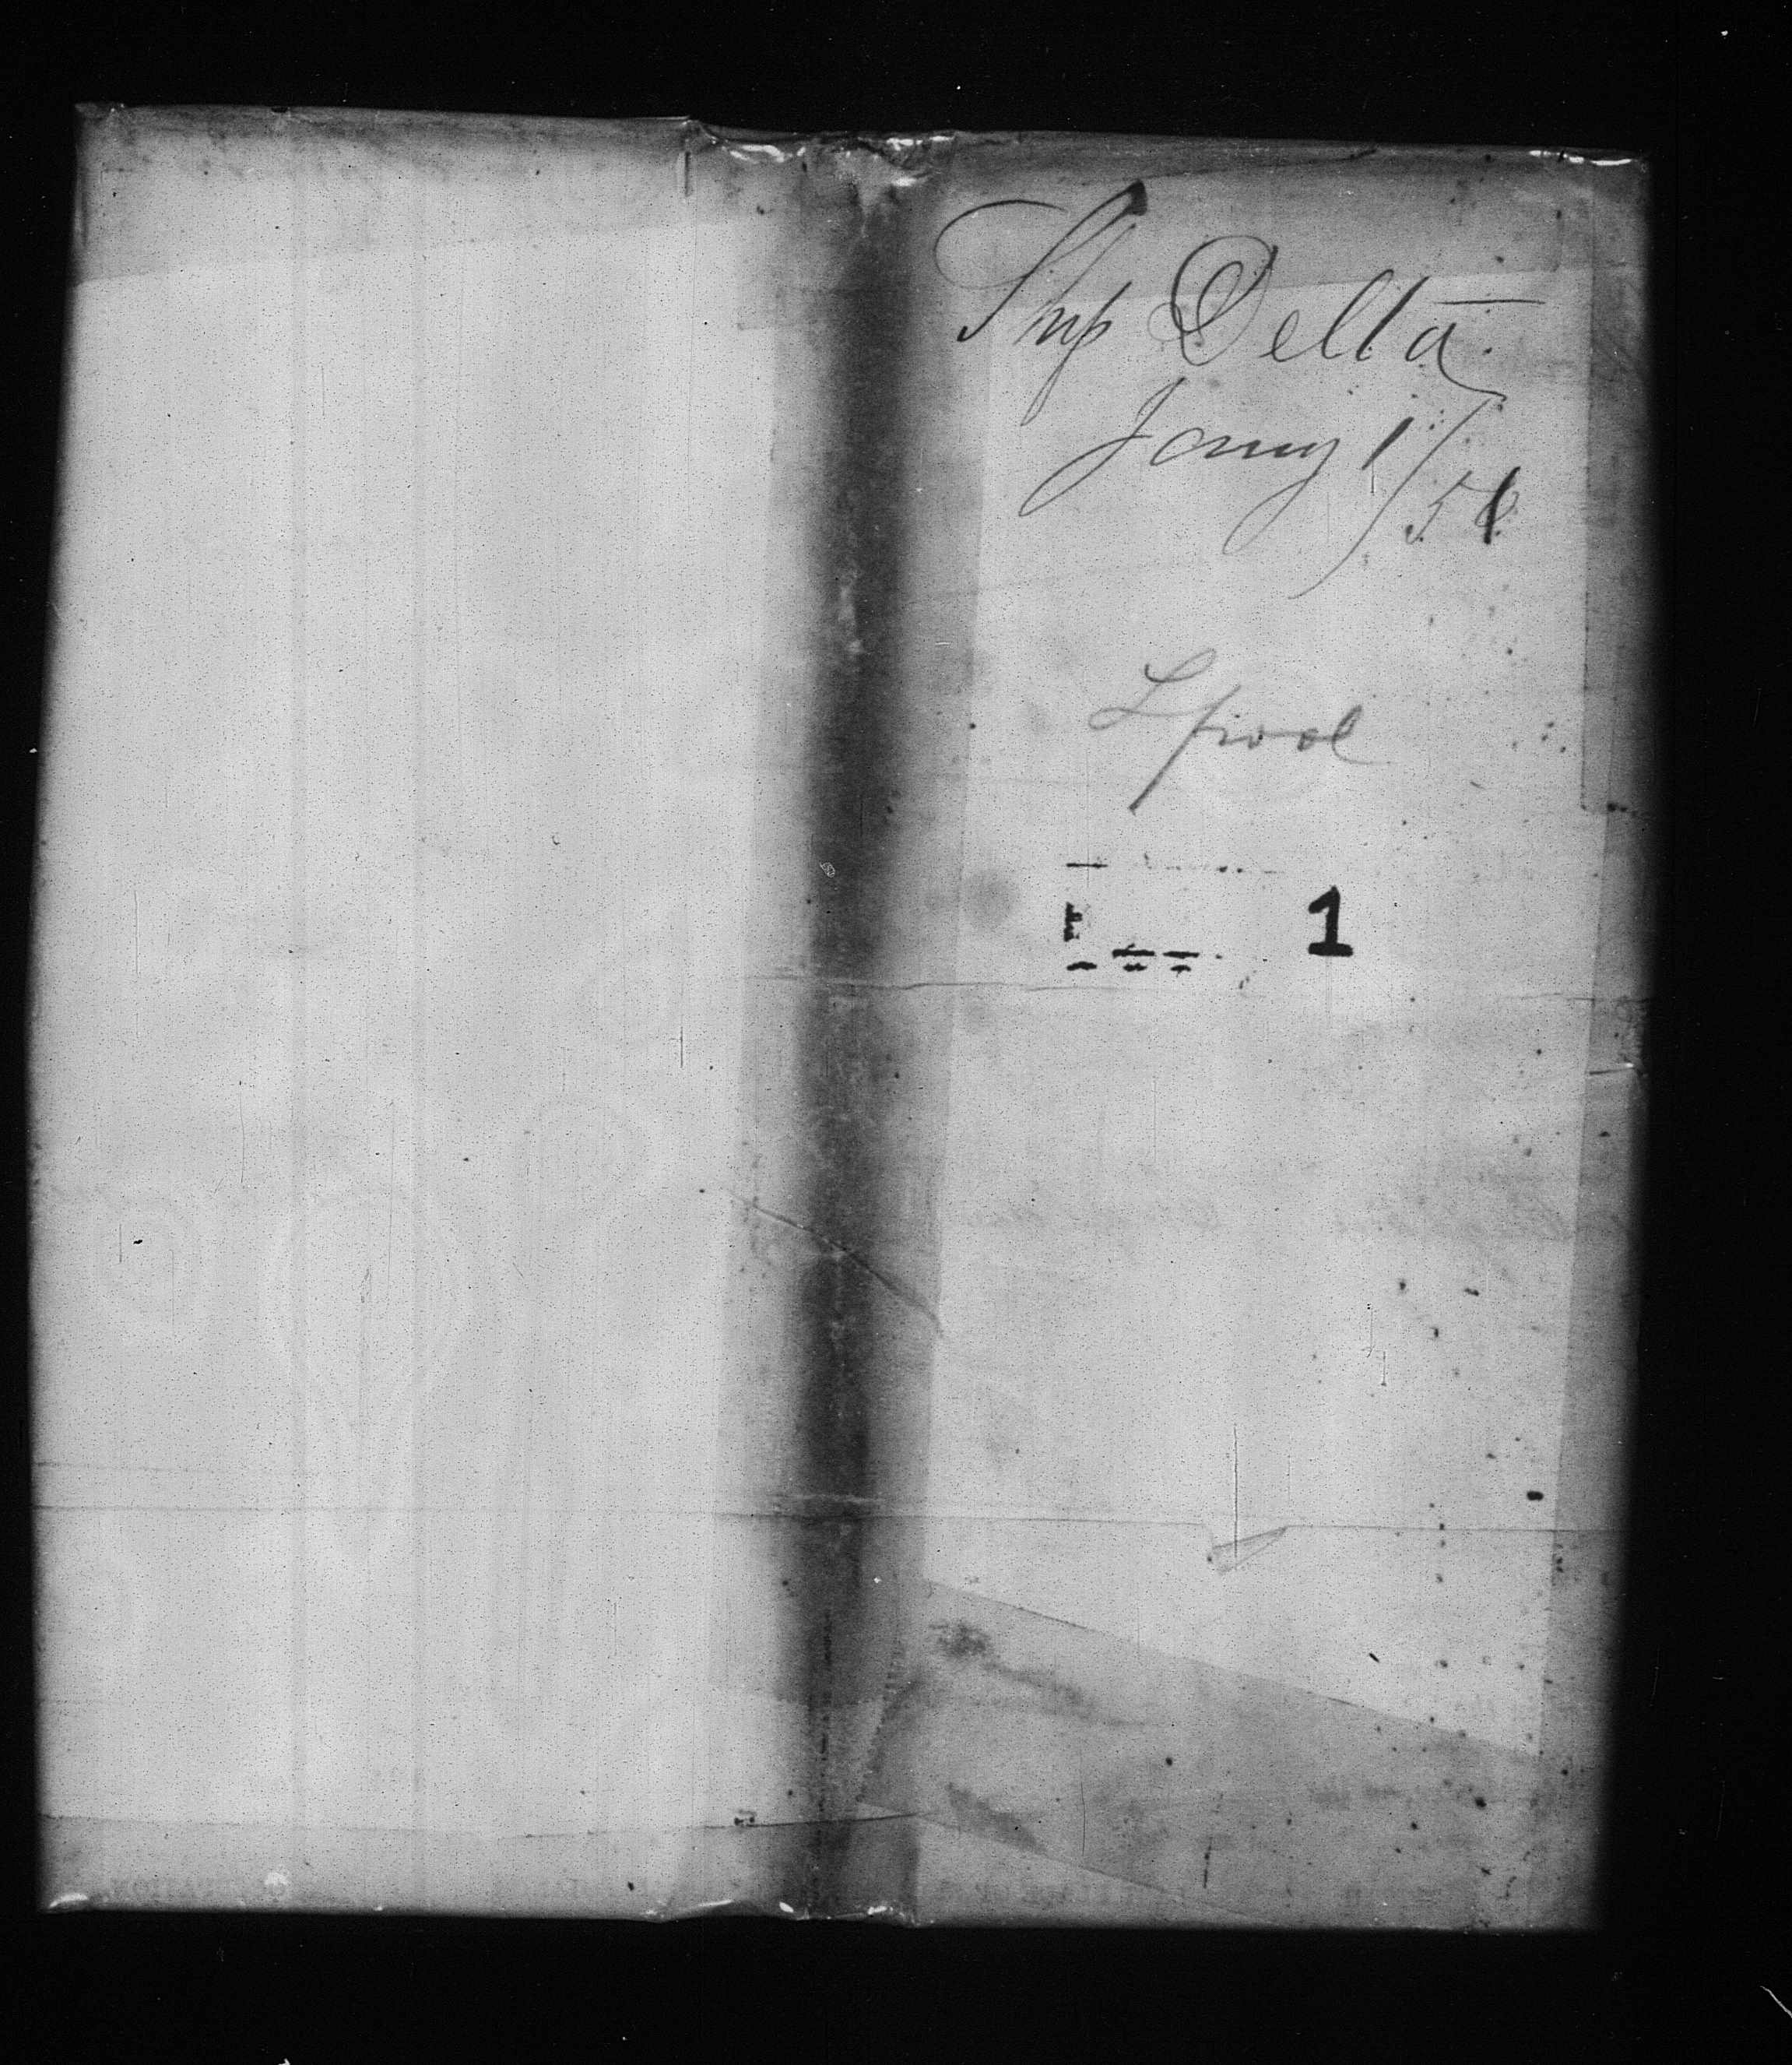 Ship Delta.
Jany 1/
Lpool
1